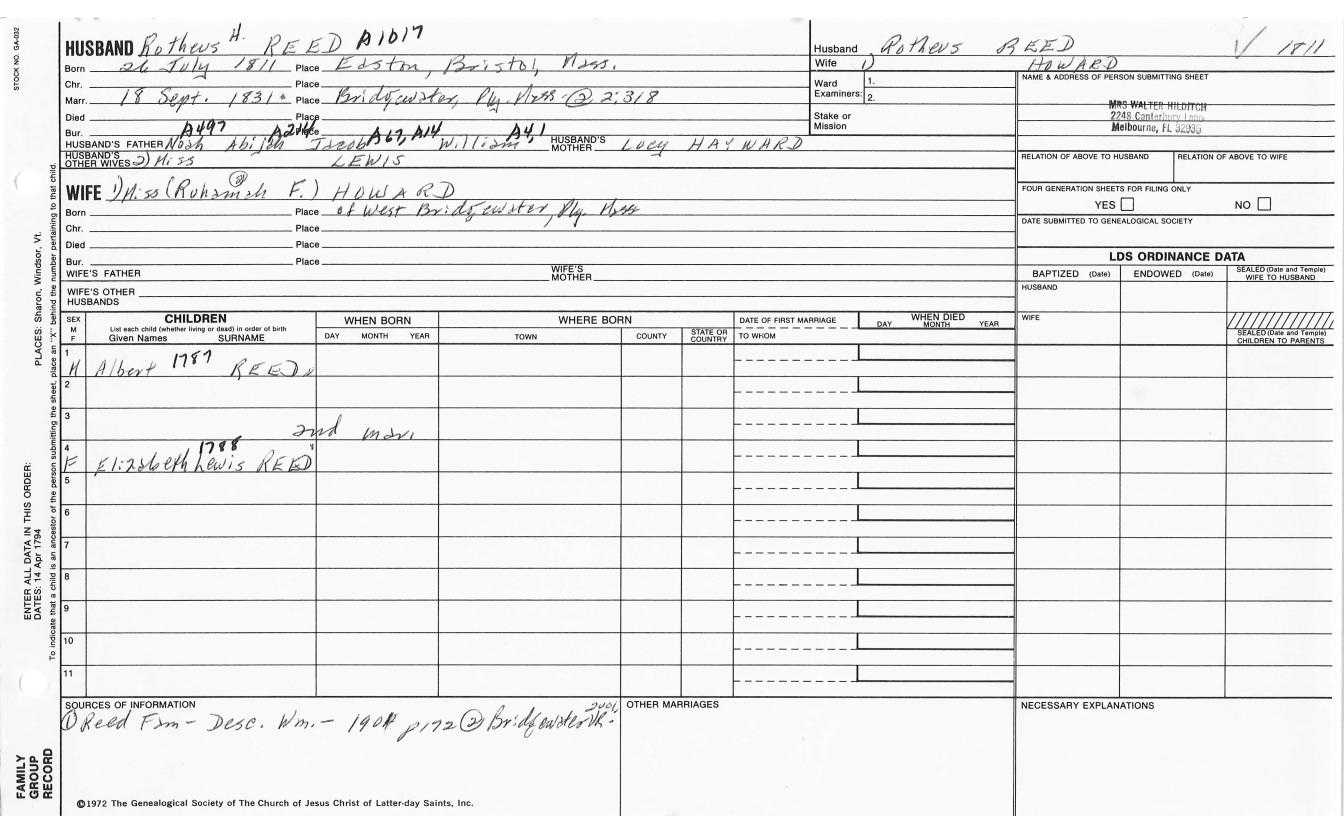 STOCK NO. GA-032
HUSBAND Rotheus H. REED A1017
Born 26 July 1811 Place Easton, Bristol, Mass.
Chr. Place
Marr. 18 Sept. 1831 Place Bridgewater, Ply. Mass ② 2:318
Died Place
Bur. Place
A497 A214 A67, A14 A4,1
HUSBAND'S FATHER Noah Abijah Jacob William HUSBAND'S MOTHER Lucy HAYWARD
HUSBAND'S OTHER WIVES 2) Miss LEWIS
WIFE 1) Miss (Ruhamah F.) ② HOWARD
Born Place of West Bridgewater, Ply. Mass
Chr. Place
Died Place
Bur. Place
WIFE'S FATHER WIFE'S MOTHER
WIFE'S OTHER HUSBANDS
Husband Rotheus REED √ 1811
Wife 1) HOWARD
Ward Examiners: 1. 2.
Stake or Mission
NAME & ADDRESS OF PERSON SUBMITTING SHEET
MRS WALTER HILDITCH
2248 Canterbury Lane
Melbourne, FL 32935
RELATION OF ABOVE TO HUSBAND RELATION OF ABOVE TO WIFE
FOUR GENERATION SHEETS FOR FILING ONLY
YES NO
DATE SUBMITTED TO GENEALOGICAL SOCIETY
LDS ORDINANCE DATA
BAPTIZED (Date) ENDOWED (Date) SEALED (Date and Temple) WIFE TO HUSBAND
HUSBAND
WIFE
SEALED (Date and Temple) CHILDREN TO PARENTS
SEX M F
CHILDREN
List each child (whether living or dead) in order of birth
Given Names SURNAME
WHEN BORN
DAY MONTH YEAR
WHERE BORN
TOWN COUNTY STATE OR COUNTRY
DATE OF FIRST MARRIAGE
TO WHOM
WHEN DIED
DAY MONTH YEAR
1 M Albert 1787 REED
2
3 2nd mar.
4 F Elizabeth Lewis REED 1788
5
6
7
8
9
10
11
SOURCES OF INFORMATION
① Reed Fam - Desc. Wm. - 1901 p172 ② Bridgewater VR.
OTHER MARRIAGES
NECESSARY EXPLANATIONS
©1972 The Genealogical Society of The Church of Jesus Christ of Latter-day Saints, Inc.
FAMILY GROUP RECORD
ENTER ALL DATA IN THIS ORDER:
DATES: 14 Apr 1794
PLACES: Sharon, Windsor, Vt.
To indicate that a child is an ancestor of the person submitting the sheet, place an "X" behind the number pertaining to that child.